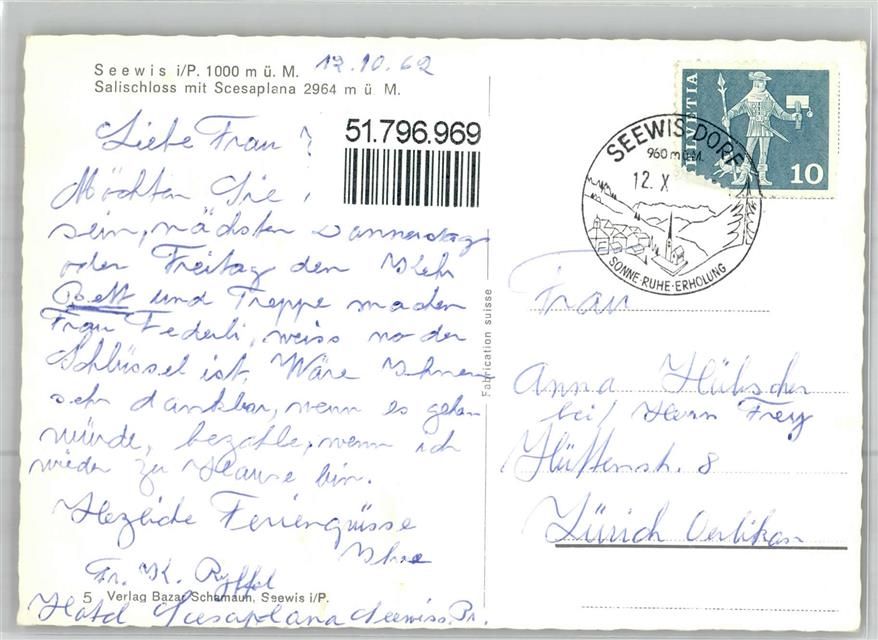 Seewis i/P. 1000 m ü. M. 12.10.62
Salischloss mit Scesaplana 2964 m ü M.
Liebe Frau ?
51.796.969
Möchten Sie,
sein, nächsten Donnerstag
oder Freitag den
Bett und Treppe machen
Frau Federli, weiss wo der
Schlüssel ist. Wäre Ihnen
sehr dankbar, wenn es gehen
würde, bezahle, wenn ich
wieder zu Hause bin.
Hezliche Feriengrüsse
Ihre
Fr. K. Ryffel
5 Verlag Bazar Schamaun, Seewis i/P.
Hotel Scesaplana Seewis. Pr.
Fabrication suisse
HELVETIA
10
SEEWIS-DORF
960 m ü. M.
12. X
SONNE-RUHE-ERHOLUNG
Frau
Anna Hübscher
bei Herrn Frey
Hüttenstr. 8
Zürich Oerlikon